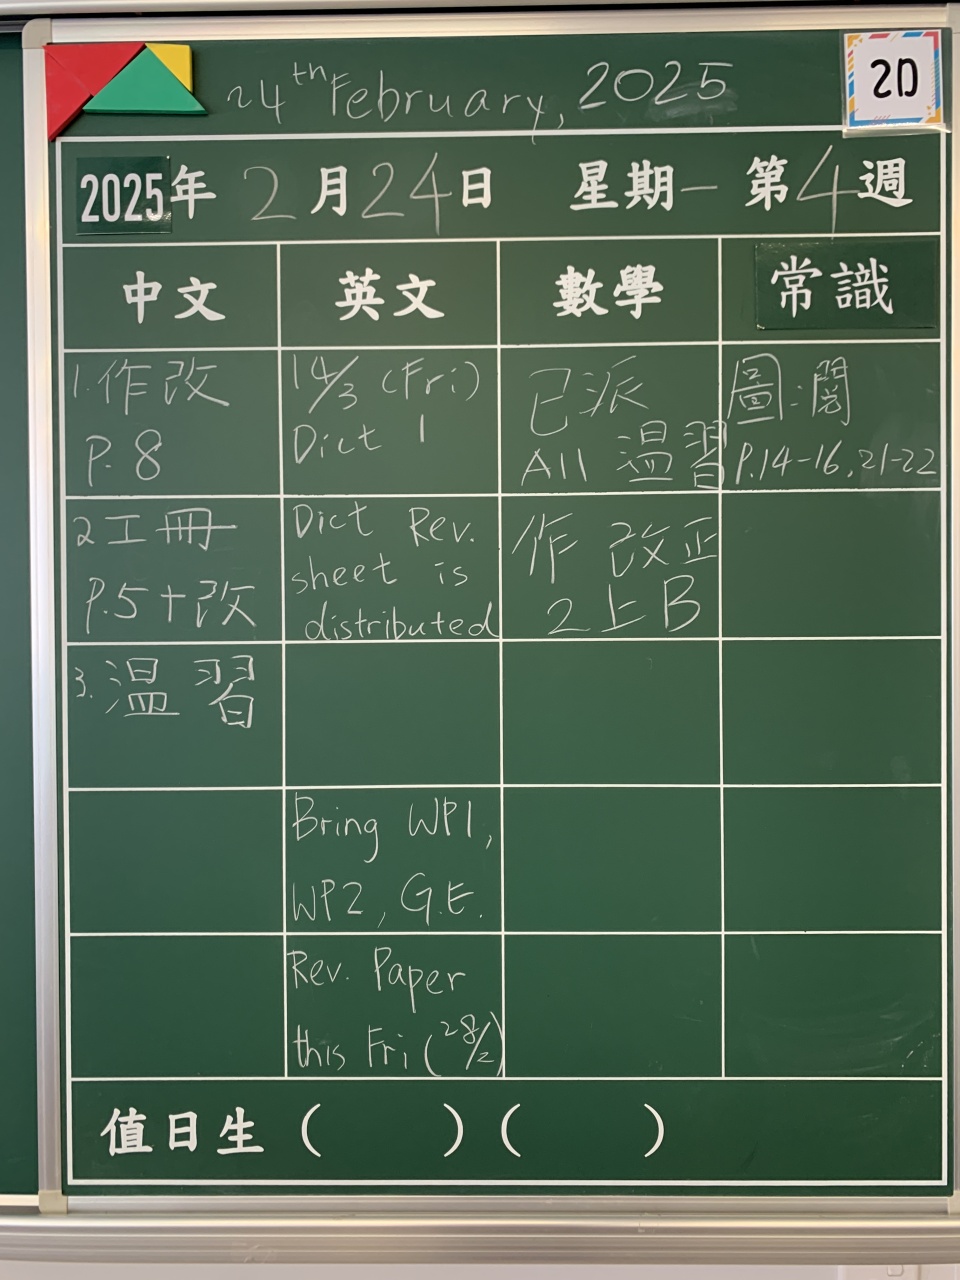 24th February, 2025
2D
2025年 2月24日 星期一 第4週
中文 英文 數學 常識
1.作改
P.8
14/3 (Fri)
Dict 1
已派
All 溫習
圖:閱
P.14-16,21-22
2工冊
P.5+改
Dict Rev.
sheet is
distributed
作 改正
2上B
3.溫習
Bring WP1,
WP2, G.E.
Rev. Paper
this Fri (28/2)
值日生 ( ) ( )